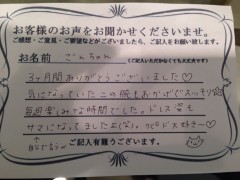 お客様のお声をお聞かせくださいませ。
ご感想・ご意見・ご要望などがございましたら、ご記入をお願い致します。
お名前 ごんちゃん
(ご記入いただかなくても大丈夫です)
3ヶ月間ありがとうございました♡
気になっていた二の腕もおかげでスッキリ
毎週楽しみな時間でした。ドレス姿も
サマになってましたよ(笑)。
好き〜♡
ご記入有難うございます。